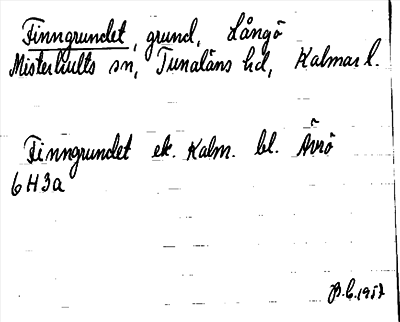 Finngrundet, grund, Långö
Misterhults sn, Tunaläns hd, Kalmar l.
Finngrundet ek. Kalm. bl. Ävrö
6H3a
B.C. 1957